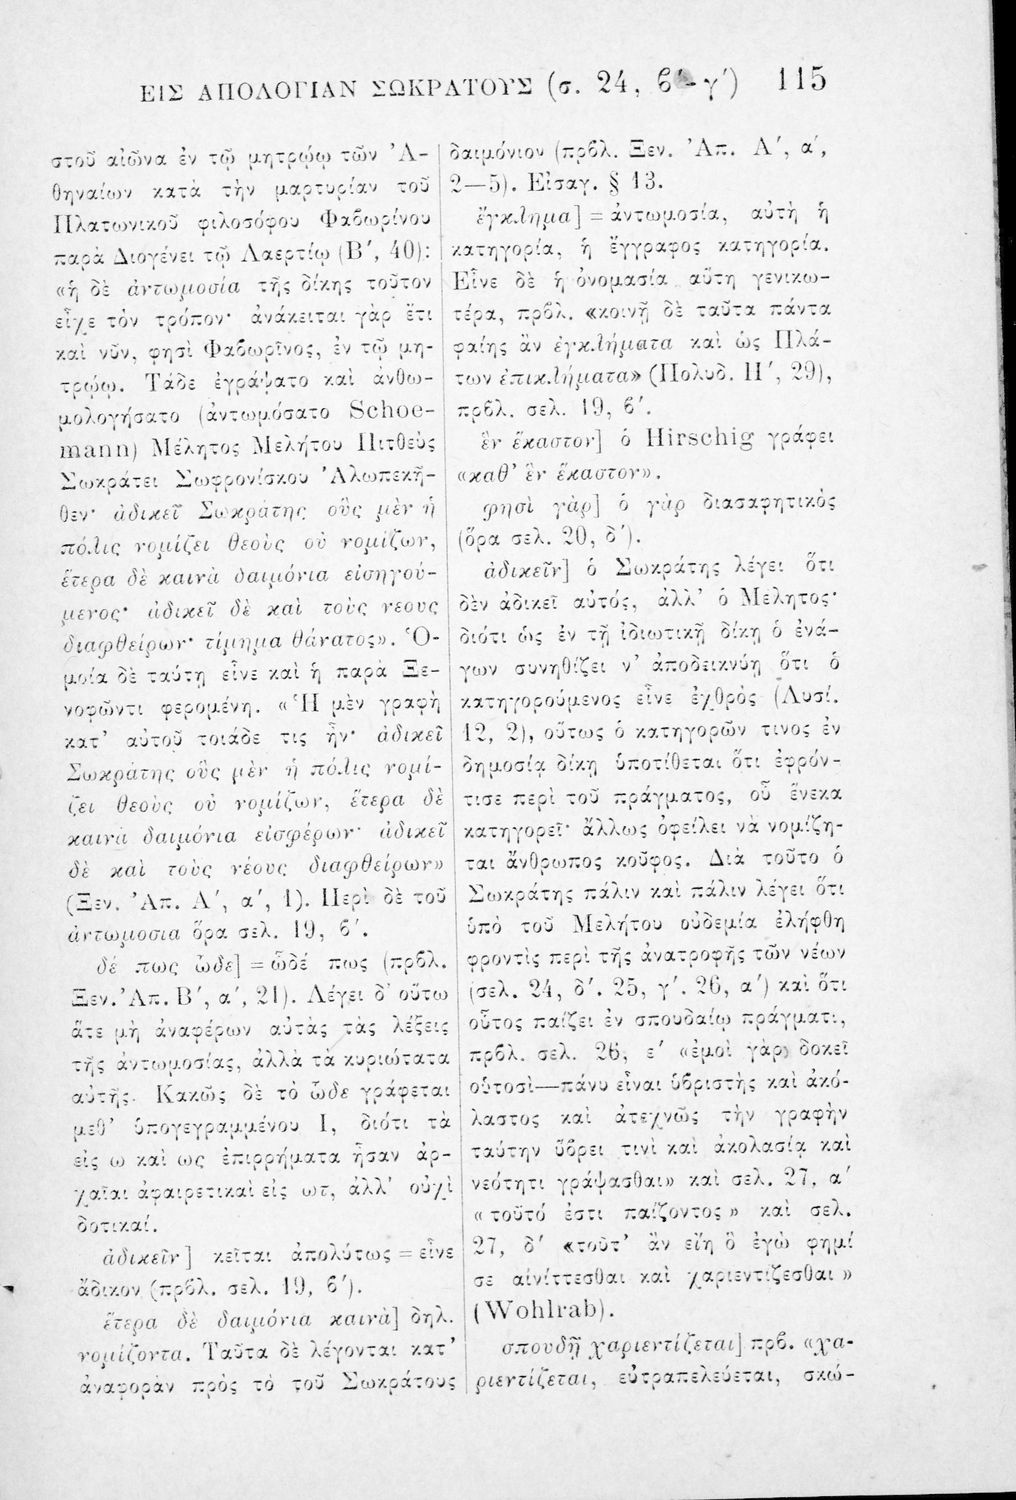 ΕΙΣ ΑΠΟΛΟΓΙΑΝ ΣΩΚΡΑΤΟΥΣ (σ. 24, β΄-γ΄) 115
στοῦ αἰῶνα ἐν τῷ μητρῴῳ τῶν Ἀ-
θηναίων κατὰ τὴν μαρτυρίαν τοῦ
Πλατωνικοῦ φιλοσόφου Φαβωρίνου
παρὰ Διογένει τῷ Λαερτίῳ (Β΄, 40):
«ἡ δὲ ἀντωμοσία τῆς δίκης τοῦτον
εἶχε τὸν τρόπον· ἀνάκειται γὰρ ἔτι
καὶ νῦν, φησὶ Φαβωρῖνος, ἐν τῷ μη-
τρῴῳ. Τάδε ἐγράψατο καὶ ἀνθω-
μολογήσατο (ἀντωμόσατο Schoe-
mann) Μέλητος Μελήτου Πιτθεὺς
Σωκράτει Σωφρονίσκου Ἀλωπεκῆ-
θεν· ἀδικεῖ Σωκράτης οὓς μὲν ἡ
πόλις νομίζει θεοὺς οὐ νομίζων,
ἕτερα δὲ καινὰ δαιμόνια εἰσηγού-
μενος· ἀδικεῖ δὲ καὶ τοὺς νεους
διαφθείρων· τίμημα θάνατος». Ὁ-
μοία δὲ ταύτῃ εἶνε καὶ ἡ παρὰ Ξε-
νοφῶντι φερομένη. «Ἡ μὲν γραφὴ
κατ' αὐτοῦ τοιάδε τις ἦν· ἀδικεῖ
Σωκράτης οὓς μὲν ἡ πόλις νομί-
ζει θεοὺς οὐ νομίζων, ἕτερα δὲ
καινὰ δαιμόνια εἰσφέρων· ἀδικεῖ
δὲ καὶ τοὺς νέους διαφθείρων»
(Ξεν. Ἀπ. Α΄, α΄, 1). Περὶ δὲ τοῦ
ἀντωμοσια ὅρα σελ. 19, β΄.
δέ πως ὧδε] = ὧδέ πως (πρβλ.
Ξεν. Ἀπ. Β΄, α΄, 21). Λέγει δ' οὕτω
ἅτε μὴ ἀναφέρων αὐτὰς τὰς λέξεις
τῆς ἀντωμοσίας, ἀλλὰ τὰ κυριώτατα
αὐτῆς. Κακῶς δὲ τὸ ὧδε γράφεται
μεθ' ὑπογεγραμμένου Ι, διότι τὰ
εἰς ω καὶ ως ἐπιρρήματα ἦσαν ἀρ-
χαῖαι ἀφαιρετικαὶ εἰς ωτ, ἀλλ' οὐχὶ
δοτικαί.
ἀδικεῖν] κεῖται ἀπολύτως = εἶνε
ἄδικον (πρβλ. σελ. 19, β΄).
ἕτερα δὲ δαιμόνια καινὰ] δηλ.
νομίζοντα. Ταῦτα δὲ λέγονται κατ'
ἀναφορὰν πρὸς τὸ τοῦ Σωκράτους
δαιμόνιον (πρβλ. Ξεν. Ἀπ. Α΄, α΄,
2—5). Εἰσαγ. § 13.
ἔγκλημα] = ἀντωμοσία, αὐτὴ ἡ
κατηγορία, ἡ ἔγγραφος κατηγορία.
Εἶνε δὲ ἡ ὀνομασία αὕτη γενικω-
τέρα, πρβλ. «κοινῇ δὲ ταῦτα πάντα
φαίης ἂν ἐγκλήματα καὶ ὡς Πλά-
των ἐπικλήματα» (Πολυδ. Η΄, 29),
πρβλ. σελ. 19, β΄.
ἓν ἕκαστον] ὁ Hirschig γράφει
«καθ' ἓν ἕκαστον».
φησὶ γὰρ] ὁ γὰρ διασαφητικὸς
(ὅρα σελ. 20, δ΄).
ἀδικεῖν] ὁ Σωκράτης λέγει ὅτι
δὲν ἀδικεῖ αὐτός, ἀλλ' ὁ Μελητος·
διότι ὡς ἐν τῇ ἰδιωτικῇ δίκῃ ὁ ἐνά-
γων συνηθίζει ν' ἀποδεικνύῃ ὅτι ὁ
κατηγορούμενος εἶνε ἐχθρὸς (Λυσί.
12, 2), οὕτως ὁ κατηγορῶν τινος ἐν
δημοσίᾳ δίκῃ ὑποτίθεται ὅτι ἐφρόν-
τισε περὶ τοῦ πράγματος, οὗ ἕνεκα
κατηγορεῖ· ἄλλως ὀφείλει νὰ νομίζη-
ται ἄνθρωπος κοῦφος. Διὰ τοῦτο ὁ
Σωκράτης πάλιν καὶ πάλιν λέγει ὅτι
ὑπὸ τοῦ Μελήτου οὐδεμία ἐλήφθη
φροντὶς περὶ τῆς ἀνατροφῆς τῶν νέων
(σελ. 24, δ΄. 25, γ΄. 26, α΄) καὶ ὅτι
οὗτος παίζει ἐν σπουδαίῳ πράγματι,
πρβλ. σελ. 26, ε΄ «ἐμοὶ γὰρ δοκεῖ
οὑτοσὶ—πάνυ εἶναι ὑβριστὴς καὶ ἀκό-
λαστος καὶ ἀτεχνῶς τὴν γραφὴν
ταύτην ὕβρει τινὶ καὶ ἀκολασίᾳ καὶ
νεότητι γράψασθαι» καὶ σελ. 27, α΄
«τοῦτό ἐστι παίζοντος» καὶ σελ.
27, δ΄ «τοῦτ' ἂν εἴη ὃ ἐγὼ φημί
σε αἰνίττεσθαι καὶ χαριεντίζεσθαι»
(Wohlrab).
σπουδῇ χαριεντίζεται] πρβ. «χα-
ριεντίζεται, εὐτραπελεύεται, σκώ-